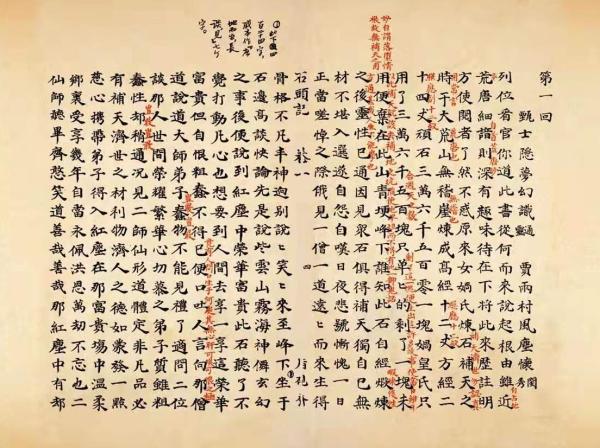 第一回
甄士隐夢幻識通靈　賈雨村風塵懷閨秀
列位看官你道此書從何而來說起根由雖近
自占地步
荒唐細諳則深有趣味待在下將此來歷註明
方使閱者了然不惑原來女媧氏煉石補天之
時于大荒山無稽崖煉成高經十二丈方經二
十四丈頑石三萬六千五百零一塊媧皇氏只
用了三萬六千五百塊只单〻的剩了一塊未
妙自謂落墮情
根故無補天之用
用便棄在此山青埂峰下誰知此石自經煅煉
之後靈性已通因見衆石俱得補天獨自己無
材不堪入選遂自怨自嘆日夜悲號慚愧一日
正當嗟悼之際俄見一僧一道遠〻而來生得
石頭記　卷一　四
骨格不凡丰神迥别說〻笑〻來至峰下坐于
石邊高談快論先是說些雲山霧海神僊玄幻
之事後便說到紅塵中榮華富貴此石聽了不
覺打動凡心也想要到人間去享一享這榮華
富貴但自恨粗蠢不得已便口吐人言向那僧
道說道大師弟子蠢物不能見禮了適問二位
談那人世間榮耀繁華心切慕之弟子質雖粗
蠢性却稍通况見二師仙形道體定非凡品必
有補天濟世之材利物濟人之德如蒙發一點
慈心携帶弟子得入紅塵在那富貴場中溫柔
鄉裏受享幾年自當永佩洪恩萬劫不忘也二
仙師聽畢齊憨笑道善哉善哉那紅塵中有却